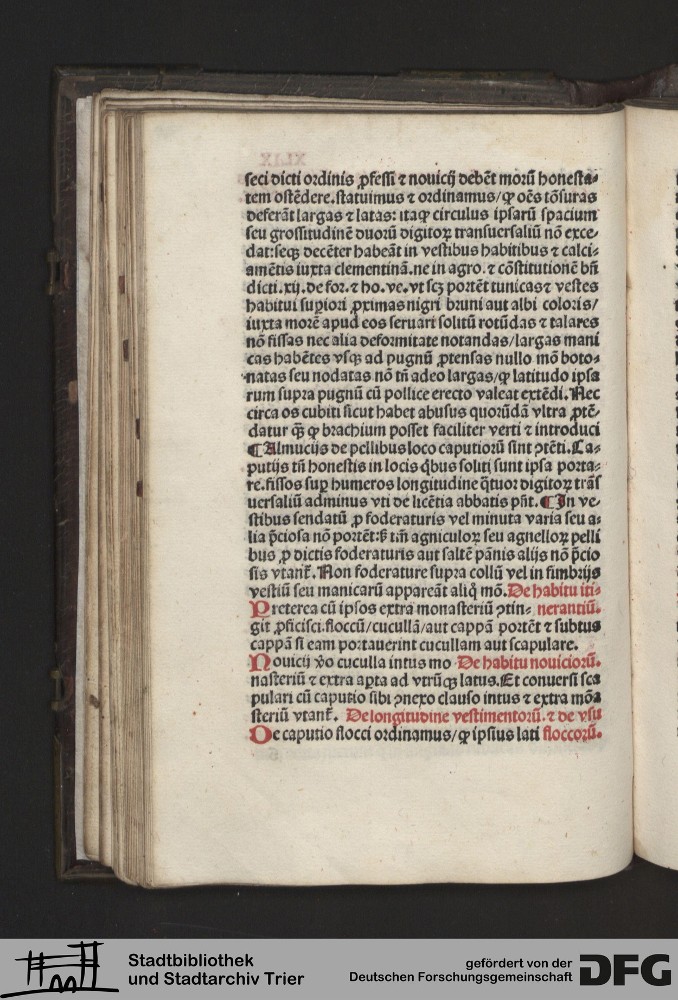 seci dicti ordinis ꝓfessi ⁊ nouicij debēt morū honesta⸗
tem ostēdere.statuimus ⁊ ordinamus/ꝙ oēs tōsuras
deferāt largas ⁊ latas: itaꝙ circulus ipsarū spacium
seu grossitudinē duorū digitoꝝ transuersaliū nō exce⸗
dat:seqꝫ decēter habeāt in vestibus habitibus ⁊ calci⸗
amētis iuxta clementinā.ne in agro.⁊ cōstitutionē bn̄
dicti.xij.de for.⁊ ho.ve.vt scꝫ portēt tunicas⁊ vestes
habitui supiori ꝓximas nigri bruni aut albi coloris/
iuxta morē apud eos seruari solitū rotūdas ⁊ talares
nō fissas nec alia deformitate notandas/largas mani
cas habētes vsqꝫ ad pugnū ꝓtensas nullo mō boto⸗
natas seu nodatas nō tn̄ adeo largas/ꝙ latitudo ipsa
rum supra pugnū cū pollice erecto valeat extēdi.Nec
circa os cubiti sicut habet abusus quorūdā vltra ꝓtē⸗
datur qꝫ̄ ꝙ brachium posset faciliter verti ⁊ introduci
¶Almucijs de pellibus loco caputiorū sint ꝯtēti.Ca⸗
putijs tn̄ honestis in locis qͥbus soliti sunt ipsa porta⸗
re.fissos suꝑ humeros longitudine qͣtuor digitoꝝ trāſ
uersaliū adminus vti de licētia abbatis pn̄t.¶In ve⸗
stibus sendatū ꝓ foderaturis vel minuta varia seu a⸗
lia p̄ciosa nō portēt:sꝫ tm̄ agniculoꝝ seu agnelloꝝ pelli
bus ꝓ dictis foderaturis aut saltē pānis alijs nō p̄cio
sis vtant᷑.Non foderature supra collū vel in fimbrijs
vestiū seu manicarū appareāt aliqͦ mō.De habitu iti⸗
Preterea cū ipsos extra monasteriū ꝯtin⸗ nerantiū.
git ꝓficisci.floccū/cucullā/aut cappā portēt ⁊ subtus
cappā si eam portauerint cucullam aut scapulare.
Nouicij v̄o cuculla intus mo De habitu nouiciorū.
nasteriū ⁊ extra apta ad vtrūqꝫ latus.Et conuersi sca
pulari cū caputio sibi ꝯnexo clauso intus ⁊ extra mōa
steriū vtant᷑. De longitudine vestimentorū.⁊ de vsu
De caputio flocci ordinamus/ꝙ ipsius lati floccorū.
Stadtbibliothek
und Stadtarchiv Trier
gefördert von der
Deutschen Forschungsgemeinschaft
DFG